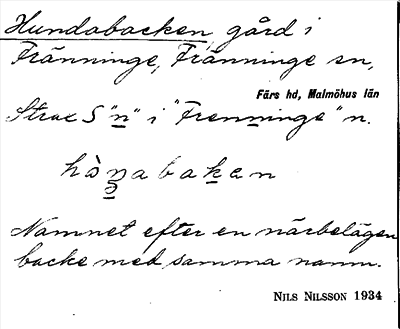 Hundabacken, gård i
Fränninge, Fränninge sn,
Färs hd, Malmöhus län
Strax S "n" i "Frenninge" n.
Namnet efter en närbelägen
backe med samma namn.
NILS NILSSON 1934